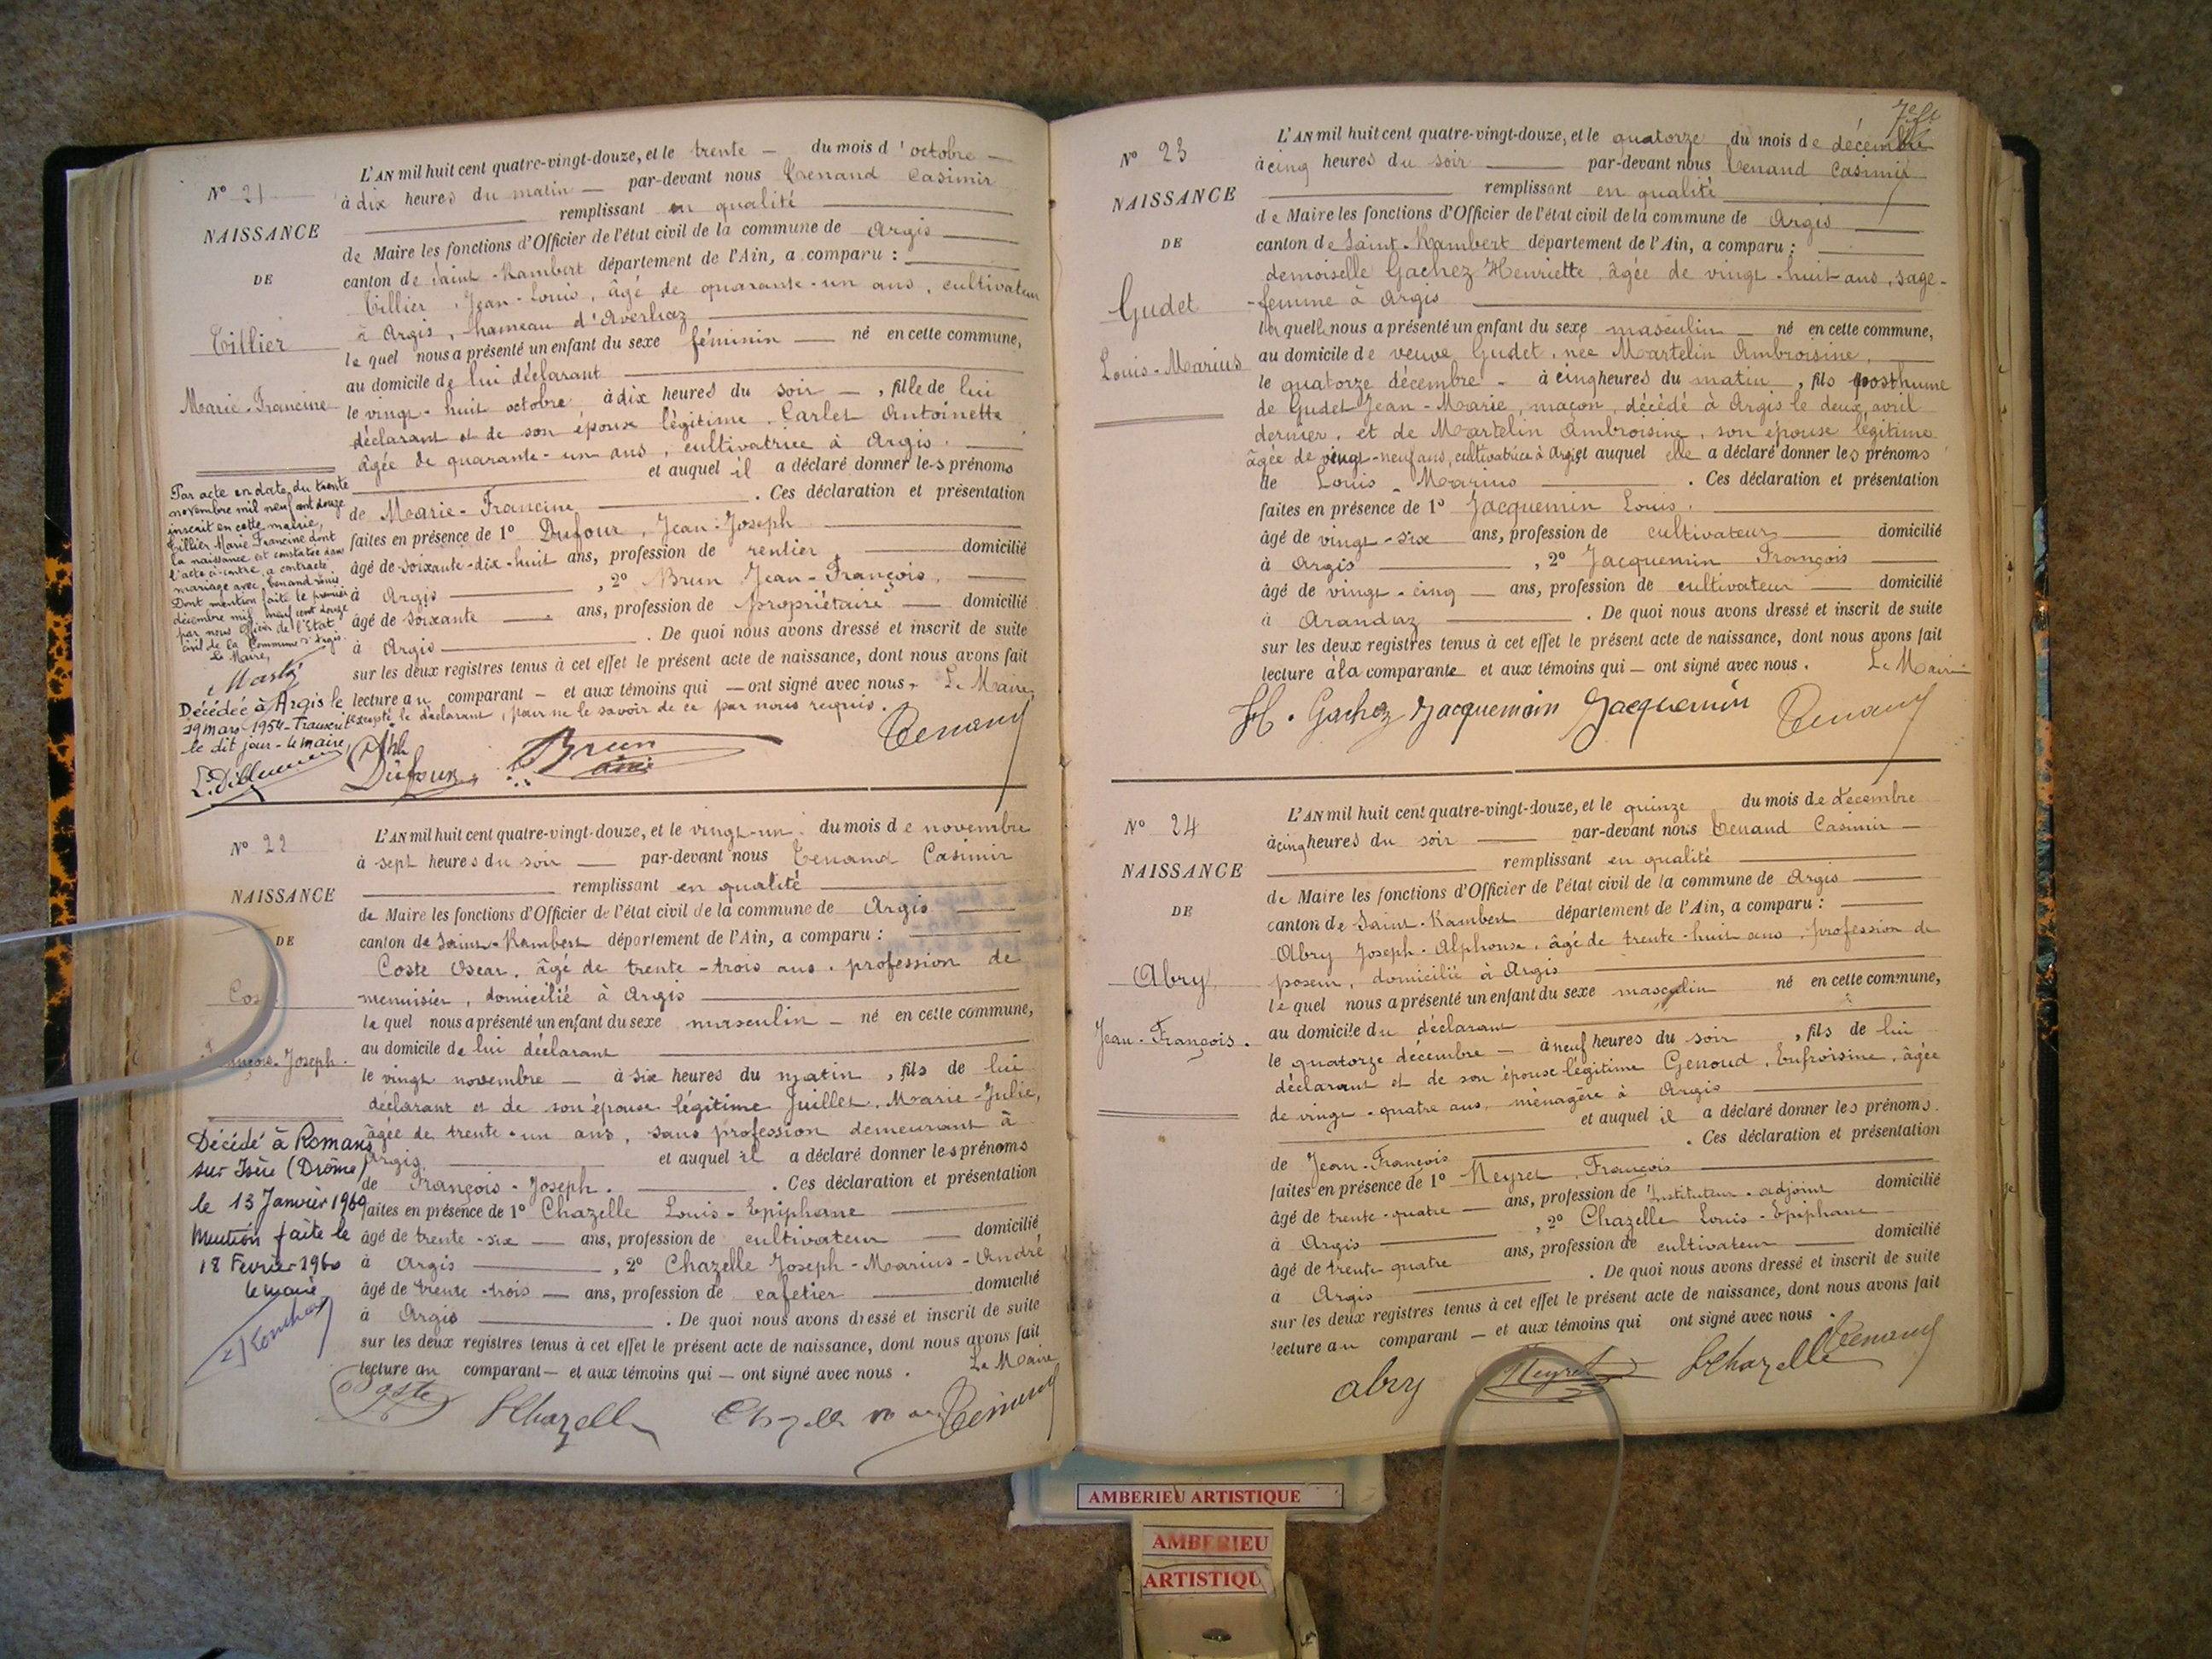 N° 21
NAISSANCE
DE
Tillier
Marie-Francine
Par acte en date du trente
novembre mil neuf cent douze
inscrit en cette mairie,
Tillier Marie Francine dont
la naissance est constatée dans
l'acte ci-contre a contracté
mariage avec Tenand
Dont mention faite le premier
décembre mil neuf cent douze
par nous Officier de l'Etat
civil de la Commune d'Argis.
Le Maire,
Décédée à Argis le
29 mars 1954 - Transcrit
le dit jour - le maire,
L'AN mil huit cent quatre-vingt-douze, et le trente — du mois d'octobre —
à dix heures du matin — par-devant nous Tenand Casimir
remplissant en qualité
de Maire les fonctions d'Officier de l'état civil de la commune de Argis
canton de Saint-Rambert département de l'Ain, a comparu :
Tillier, Jean-Louis, âgé de quarante-un ans, cultivateur
à Argis, hameau d'Averliaz
lequel nous a présenté un enfant du sexe féminin — né en cette commune,
au domicile de lui déclarant
le vingt-huit octobre à dix heures du soir —, fille de lui
déclarant et de son épouse légitime, Carlet Antoinette
âgée de quarante-un ans, cultivatrice à Argis.
et auquel il a déclaré donner les prénoms
de Marie-Francine . Ces déclaration et présentation
faites en présence de 1° Dufour, Jean-Joseph
âgé de soixante-dix-huit ans, profession de rentier, domicilié
à Argis , 2° Brun Jean-François,
âgé de soixante — ans, profession de propriétaire — domicilié
à Argis . De quoi nous avons dressé et inscrit de suite
sur les deux registres tenus à cet effet le présent acte de naissance, dont nous avons fait
lecture au comparant — et aux témoins qui — ont signé avec nous, Le Maire,
excepté le déclarant, pour ne le savoir de ce par nous requis.
Dufour Brun Tenand
N° 22
NAISSANCE
DE
François-Joseph.
Décédé à Romans
sur Isère (Drôme)
le 13 Janvier 1960
Mention faite le
18 Février 1960
le maire
L'AN mil huit cent quatre-vingt-douze, et le vingt-un du mois de novembre
à sept heures du soir — par-devant nous Tenand Casimir
remplissant en qualité
de Maire les fonctions d'Officier de l'état civil de la commune de Argis
canton de Saint-Rambert département de l'Ain, a comparu :
Coste Oscar, âgé de trente-trois ans, profession de
menuisier, domicilié à Argis
lequel nous a présenté un enfant du sexe masculin — né en cette commune,
au domicile de lui déclarant
le vingt novembre — à six heures du matin, fils de lui
déclarant et de son épouse légitime Juillet, Marie-Julie,
âgée de trente-un ans, sans profession demeurant à
Argis. et auquel il a déclaré donner les prénoms
de François-Joseph. . Ces déclaration et présentation
faites en présence de 1° Chazelle Louis-Epiphane
âgé de trente-six — ans, profession de cultivateur — domicilié
à Argis , 2° Chazelle Joseph-Marius-André
âgé de trente-trois — ans, profession de cafetier domicilié
à Argis . De quoi nous avons dressé et inscrit de suite
sur les deux registres tenus à cet effet le présent acte de naissance, dont nous avons fait
lecture au comparant — et aux témoins qui — ont signé avec nous. Le Maire
Coste Chazelle Chazelle Tenand
N° 23
NAISSANCE
DE
Gudet
Louis-Marius
L'AN mil huit cent quatre-vingt-douze, et le quatorze du mois de décembre
à cinq heures du soir — par-devant nous Tenand Casimir
remplissant en qualité
de Maire les fonctions d'Officier de l'état civil de la commune de Argis
canton de Saint-Rambert département de l'Ain, a comparu :
demoiselle Gachez Henriette, âgée de vingt-huit ans, sage-
femme à Argis
laquelle nous a présenté un enfant du sexe masculin — né en cette commune,
au domicile de veuve Gudet, née Martelin Ambroisine,
le quatorze décembre - à cinq heures du matin, fils posthume
de Gudet Jean-Marie, maçon, décédé à Argis le deux avril
dernier, et de Martelin Ambroisine, son épouse légitime
âgée de vingt-neuf ans, cultivatrice à Argis et auquel elle a déclaré donner les prénoms
de Louis-Marius . Ces déclaration et présentation
faites en présence de 1° Jacquemin Louis,
âgé de vingt-six ans, profession de cultivateur domicilié
à Argis , 2° Jacquemin François
âgé de vingt-cinq — ans, profession de cultivateur — domicilié
à Arandaz . De quoi nous avons dressé et inscrit de suite
sur les deux registres tenus à cet effet le présent acte de naissance, dont nous avons fait
lecture à la comparante et aux témoins qui — ont signé avec nous. Le Maire
H. Gachez Jacquemin Jacquemin Tenand
N° 24
NAISSANCE
DE
Abry
Jean-François.
L'AN mil huit cent quatre-vingt-douze, et le quinze du mois de décembre
à cinq heures du soir — par-devant nous Tenand Casimir —
remplissant en qualité
de Maire les fonctions d'Officier de l'état civil de la commune de Argis
canton de Saint-Rambert département de l'Ain, a comparu :
Abry Joseph-Alphonse, âgé de trente-huit ans, profession de
poseur, domicilié à Argis
lequel nous a présenté un enfant du sexe masculin né en cette commune,
au domicile du déclarant
le quatorze décembre — à neuf heures du soir, fils de lui
déclarant et de son épouse légitime Genoud, Eufroisine, âgée
de vingt-quatre ans, ménagère à Argis
et auquel il a déclaré donner les prénoms
de Jean-François . Ces déclaration et présentation
faites en présence de 1° Neyret, François
âgé de trente-quatre — ans, profession de Instituteur-adjoint domicilié
à Argis , 2° Chazelle Louis-Epiphane
âgé de trente-quatre ans, profession de cultivateur domicilié
à Argis . De quoi nous avons dressé et inscrit de suite
sur les deux registres tenus à cet effet le présent acte de naissance, dont nous avons fait
lecture au comparant — et aux témoins qui ont signé avec nous.
abry Neyret Chazelle Tenand
AMBERIEU ARTISTIQUE
AMBERIEU
ARTISTIQU